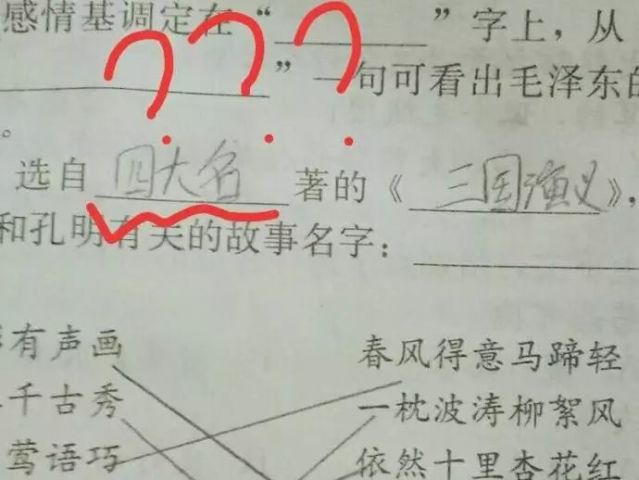 感情基调定在“______”字上，从
______”一句可看出毛泽东的
。
选自 四大名 著的《 三国演义 》，
和孔明有关的故事名字：______
有声画 春风得意马蹄轻
千古秀 一枕波涛柳絮风
莺语巧 依然十里杏花红
???